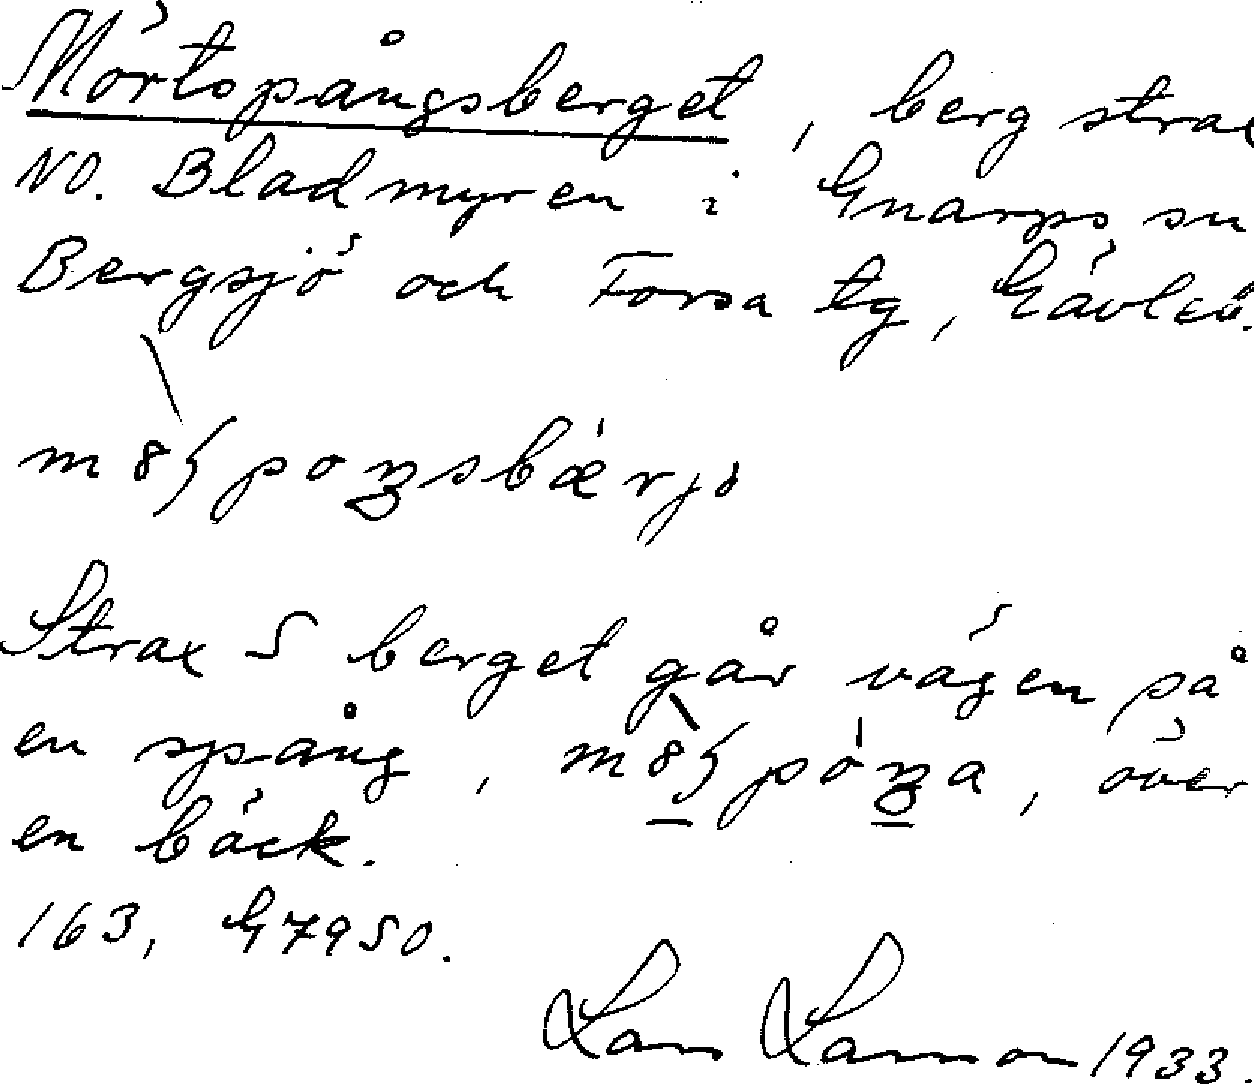 Mörtspångsberget, berg strax
NO. Bladmyren i Gnarps sn
Bergsjö och Forsa tg, Gävleb.
Strax S berget går vägen på
en spång, över
en bäck.
163, G7950.
Lars Larsson 1933.